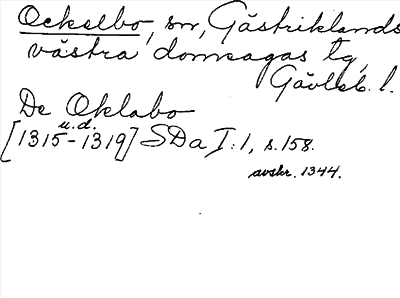 Ockelbo, sn, Gästriklands
västra domsagas tg,
Gävleb. l.
De Oklabo
u.d.
[1315-1319] SDa I:1, s.158.
avskr. 1344.